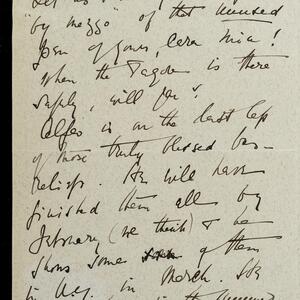 by mezzo" of that unused
pen of yours, cara mia!
When the Tagore is there
supply, will you?
Alfeo is on the last lap
of those truly blessed bas-
reliefs. He will have
finished them all by
February (we think) & he
shows some of them
in N.Y. in March. He